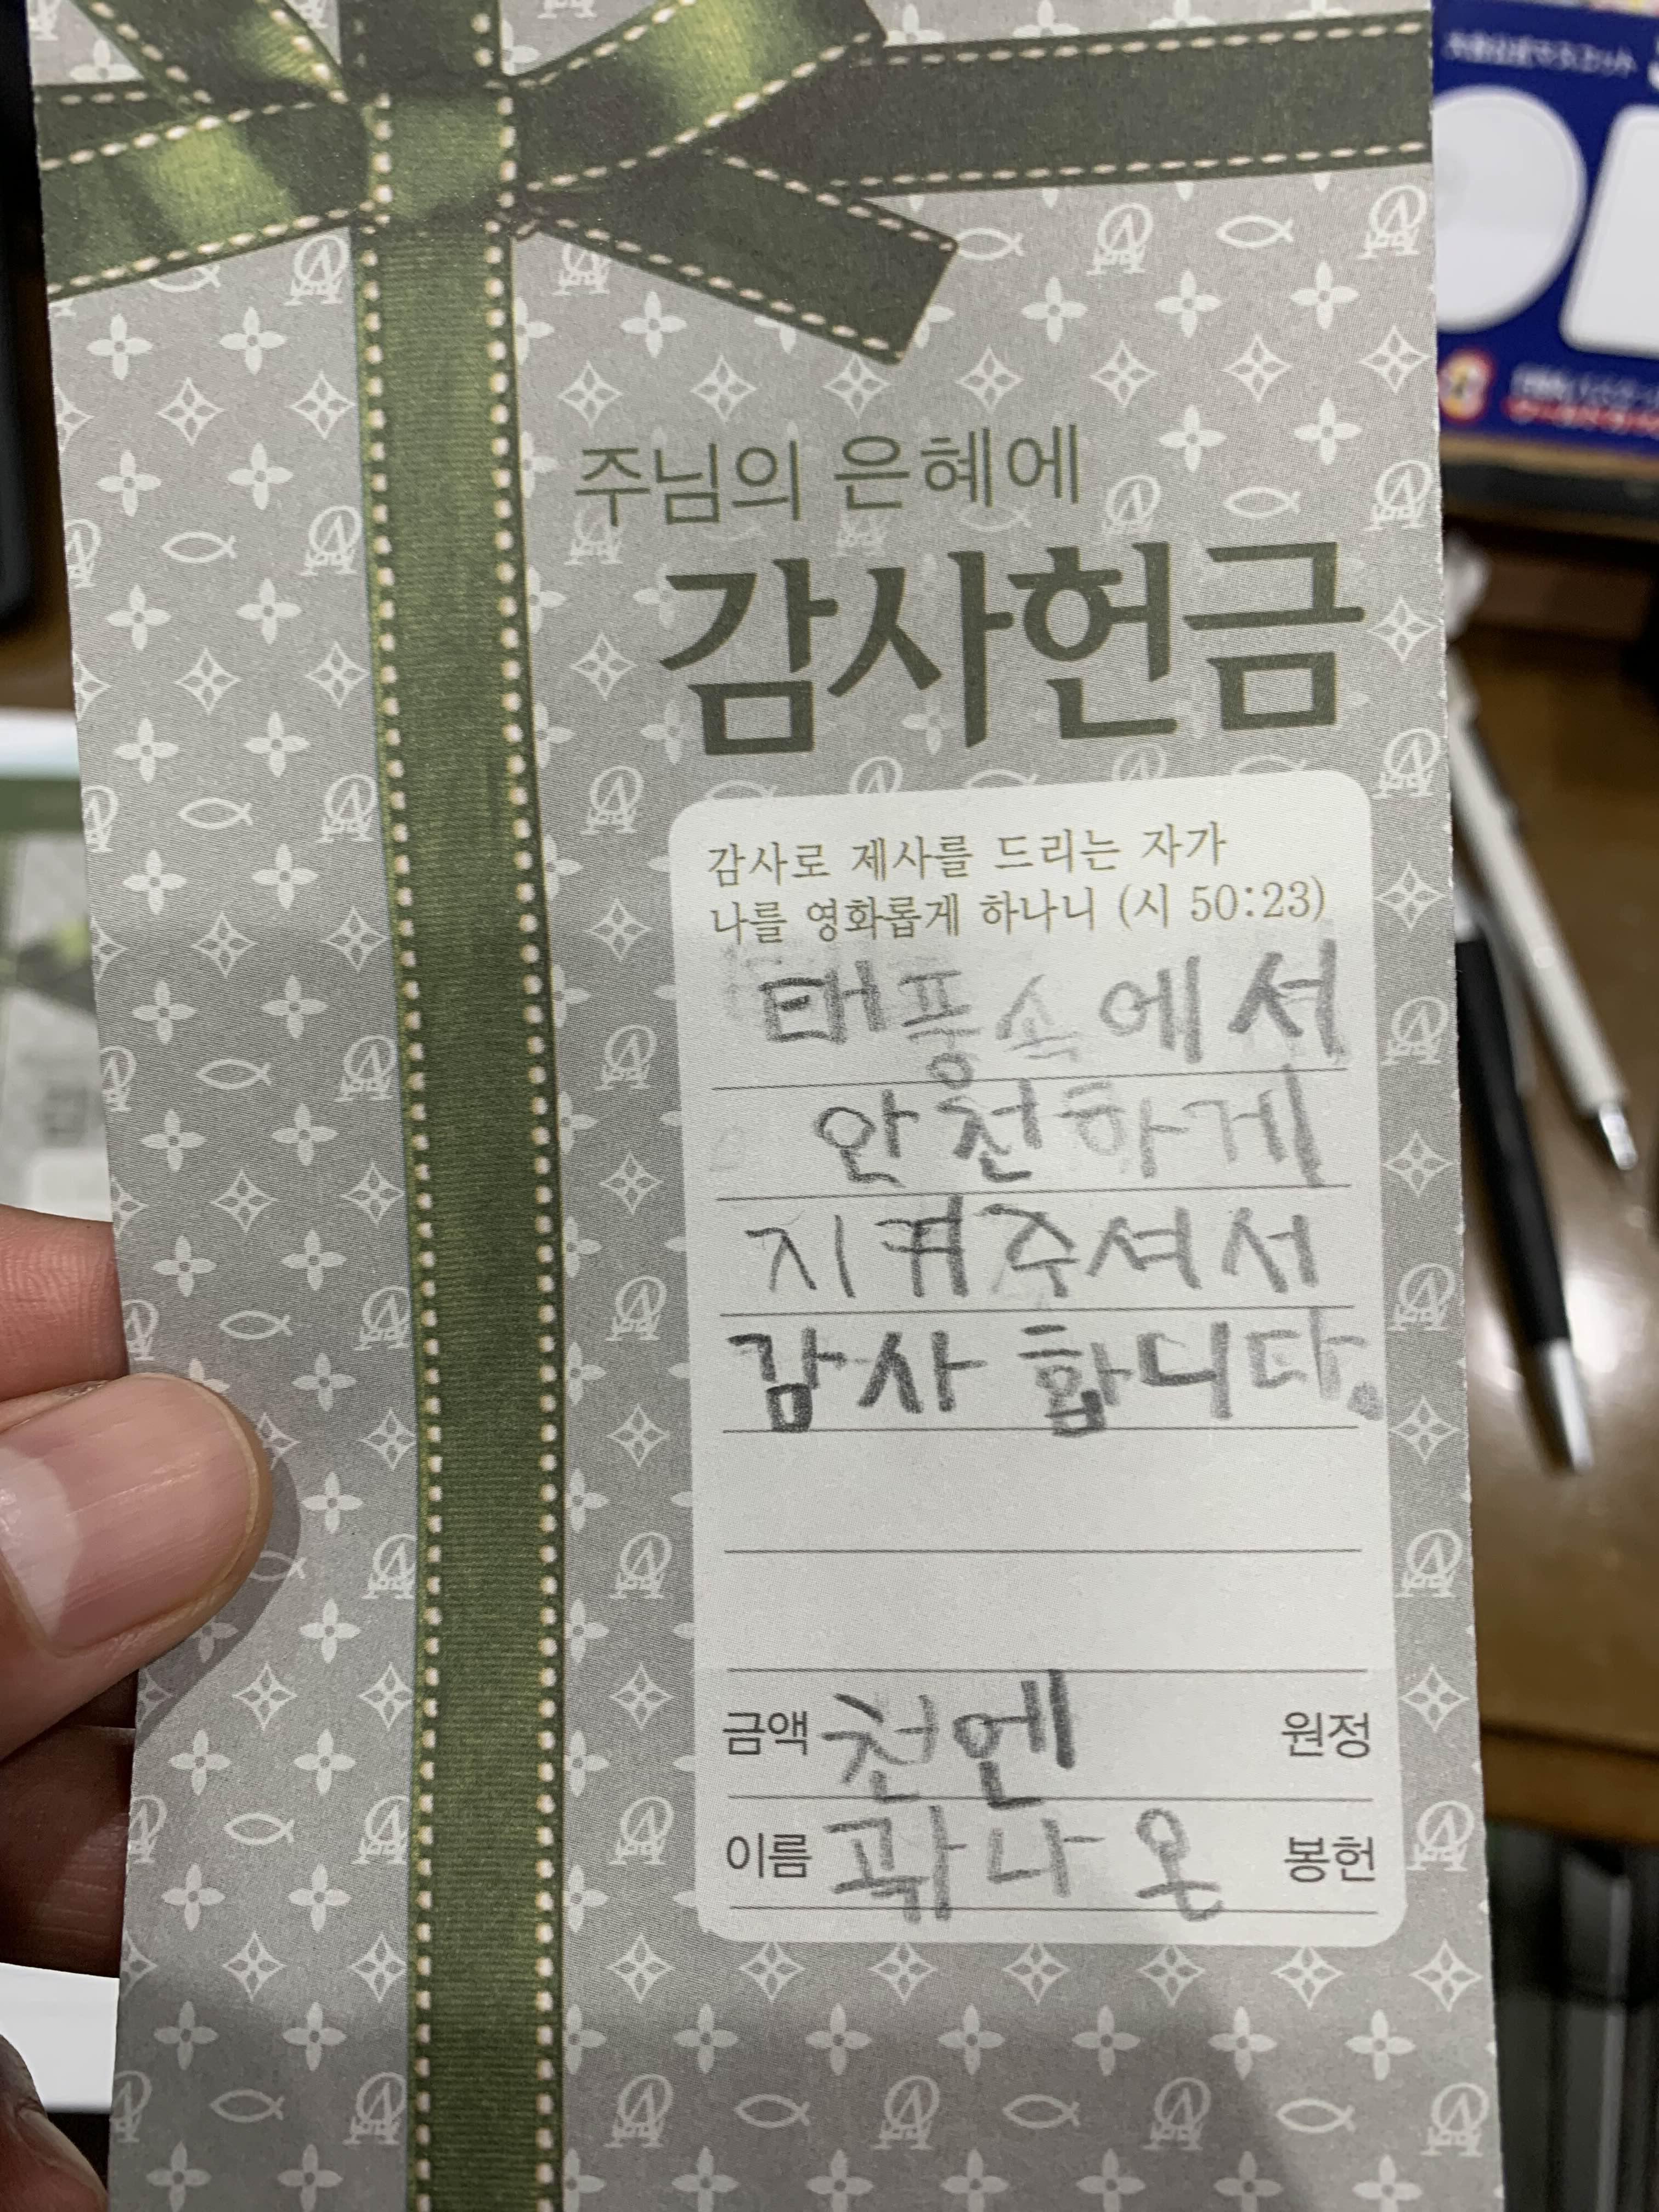 주님의 은혜에
감사헌금
감사로 제사를 드리는 자가
나를 영화롭게 하나니 (시 50:23)
태풍속에서
안전하게
지켜주셔서
감사합니다.
금액 천엔 원정
이름 곽나온 봉헌